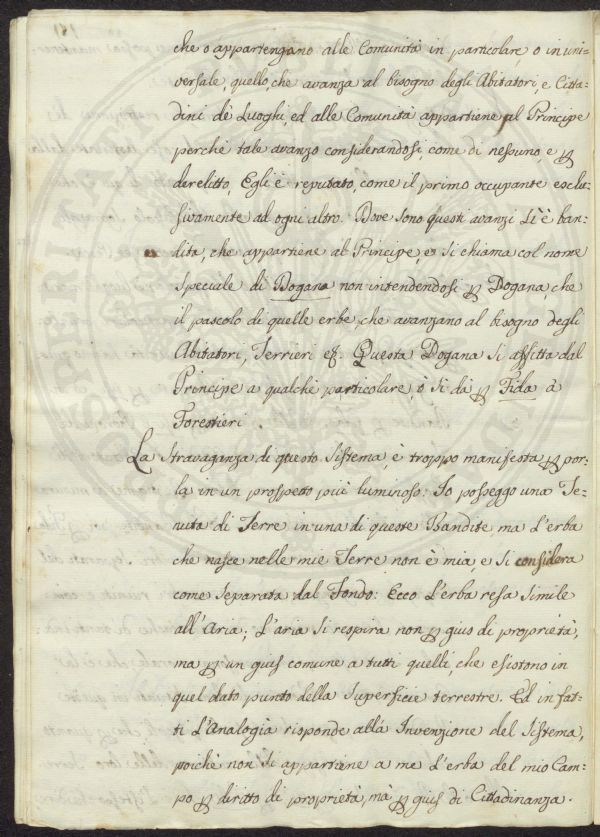 che o appartengano alle Comunità in particolare, o in uni-
versale, quello, che avanza al bisogno degli Abitatori, e Citta-
dini de' Luoghi, ed alle Comunità appartiene al Principe
perchè tale avanzo considerandosi, come di nessuno, e ꝑ
derelitto, Egli è reputato, come il primo occupante esclu-
sivamente ad ogni altro. Dove sono questi avanzi Lì è ban-
dita, che appartiene al Principe, e si chiama col nome
speciale di Dogana non intendendosi ꝑ Dogana, che
il pascolo di quelle erbe, che avanzano al bisogno degli
Abitatori, Terrieri &. Questa Dogana si affitta dal
Principe a qualchè particolare, ò si dà ꝑ Fida à
Forestieri
La stravaganza di questo sistema, è troppo manifesta ꝑ por-
la in un prospetto più luminoso: Io posseggo una Te-
nuta di Terre in una di queste Bandite, ma L'erba
che nasce nelle mie Terre non è mia, e si considera
come separata dal Fondo: Ecco L'erba resa simile
all'Aria; L'aria si respira non ꝑ gius di proprietà,
ma ꝑ un gius comune a tutti quelli, che esistono in
quel dato punto della superficie terrestre. Ed in fat-
ti L'Analogià risponde allà Invenzione del Sistema,
poichè non si appartiene a me L'erba del mio Cam-
po ꝑ diritto di proprietà, mà ꝑ gius di Cittadinanza.